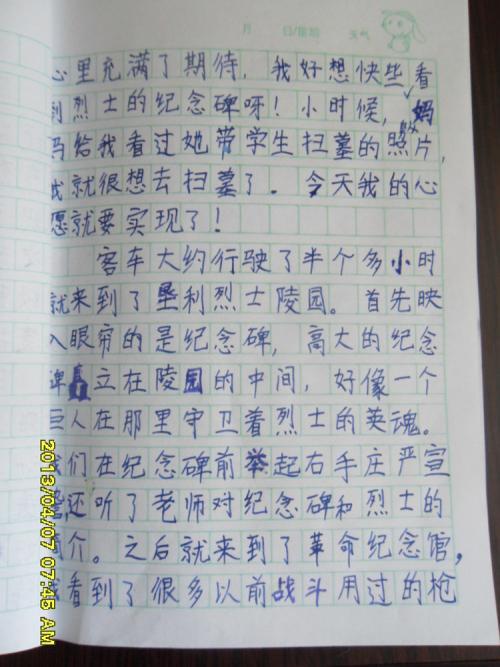 月 日/星期 天气
心里充满了期待,我好想快些看
到烈士的纪念碑呀!小时候,妈
妈给我看过她带学生扫墓的照片,
我就很想去扫墓了。今天我的心
愿就要实现了!
客车大约行驶了半个多小时
就来到了垦利烈士陵园。首先映
入眼帘的是纪念碑,高大的纪念
碑直立在陵园的中间,好像一个
巨人在那里守卫着烈士的英魂。
我们在纪念碑前举起右手庄严宣
誓还听了老师对纪念碑和烈士的
简介。之后就来到了革命纪念馆,
我看到了很多以前战斗用过的枪
2013/04/07 07:45 AM